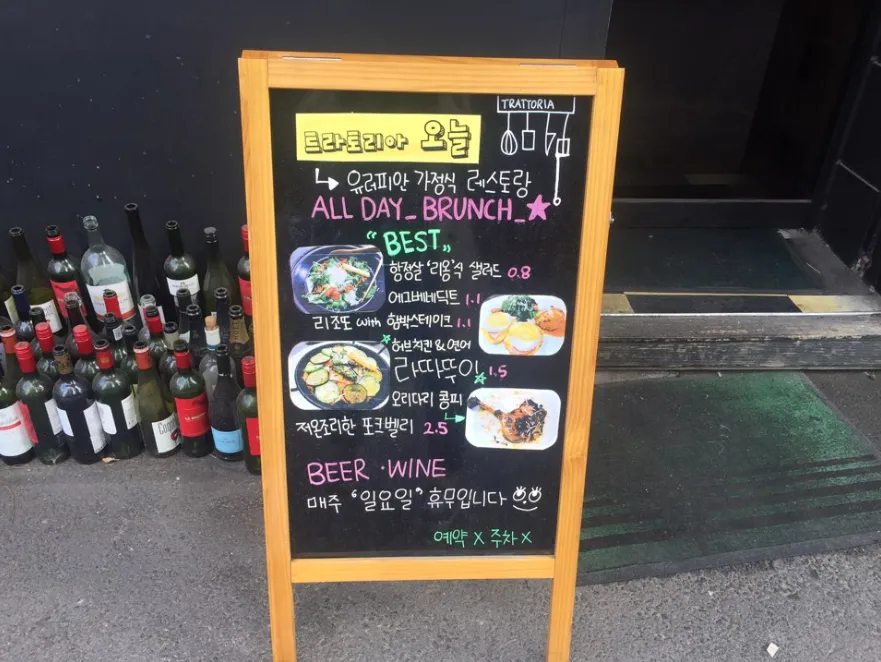 TRATTORIA
트라토리아 오늘
유러피안 가정식 레스토랑
ALL DAY_BRUNCH_★
"BEST"
항정살 '리옹'식 샐러드 0.8
에그베네딕트 1.1
리조또 with 함박스테이크 1.1
허브치킨 & 연어
라따뚜이 1.5
오리다리 콩피
저온조리한 포크벨리 2.5
BEER · WINE
매주 "일요일" 휴무입니다
예약 X 주차 X